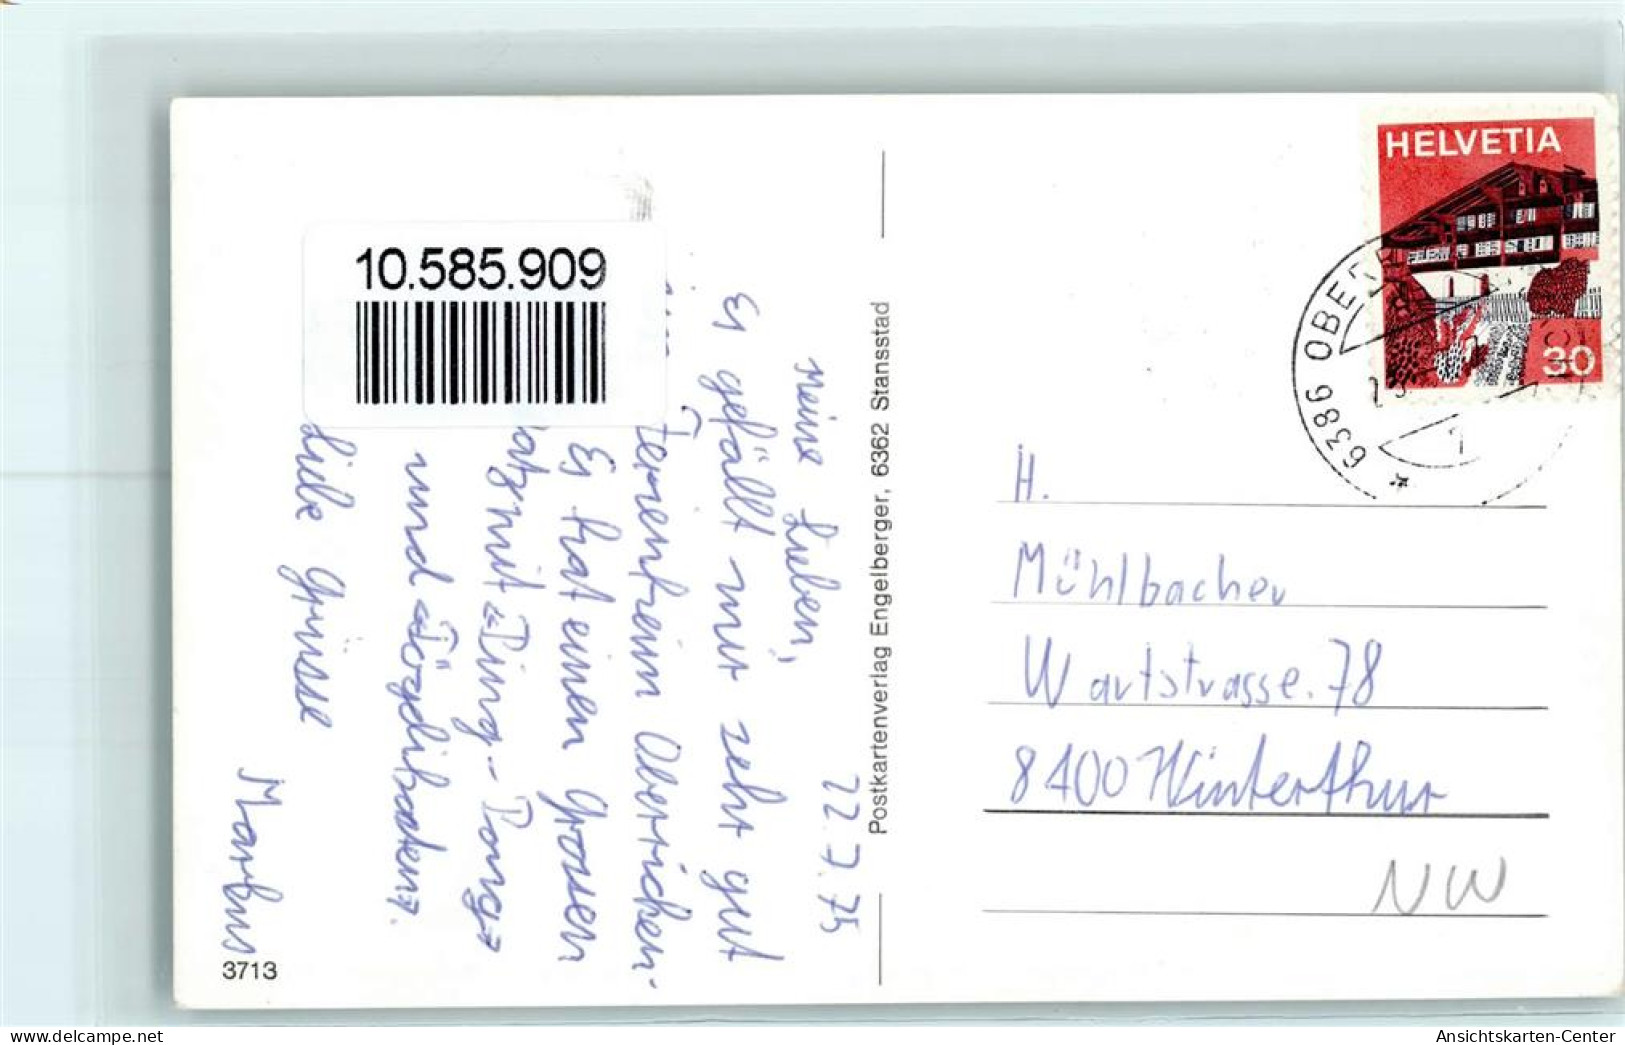 10.585.909
22.7.75
Meine Lieben,
Es gefällt mir sehr gut
Ferienheim Oberricken-
Es hat einen Grossen
mit "Ping-Pong"
und "Töggelikasten".
Liebe Grüsse
Markus
3713
Postkartenverlag Engelberger, 6362 Stansstad
HELVETIA
30
6386 OBE
H.
Mühlbacher
Wartstrasse.78
8400 Winterthur
NW
www.delcampe.net
Ansichtskarten-Center